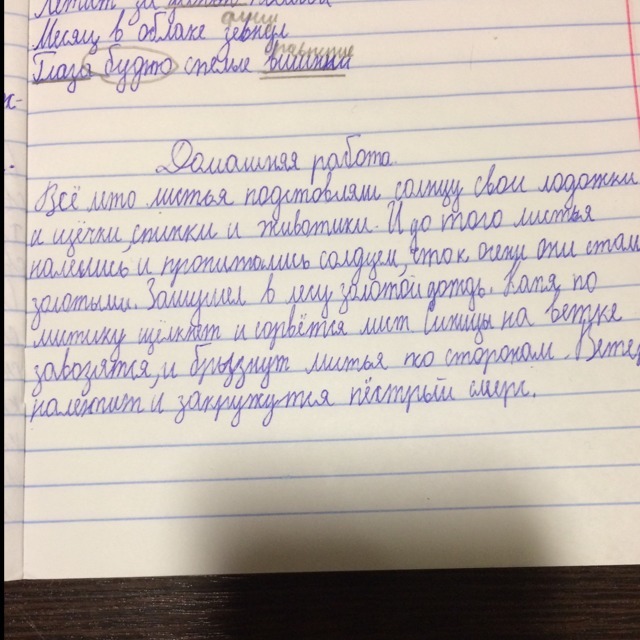 Летит за
Месяц в облаке зевнул
Глаза будто спелые вишни
Домашняя работа.
Всё лето листья подстовляли солнцу свои лодожки
и щёчки, спинки и животики. И до того листья
налелись и пропитались солдцем, что к осени они стали
золотыми. Зашумел в лесу золотой дождь. Капя, по
листику щёлкнет и сорвётся лист Синицы на ветке
завозятся, и брызнут листья по сторонам. Ветер
налетит и закружутся пёстрый смерг.